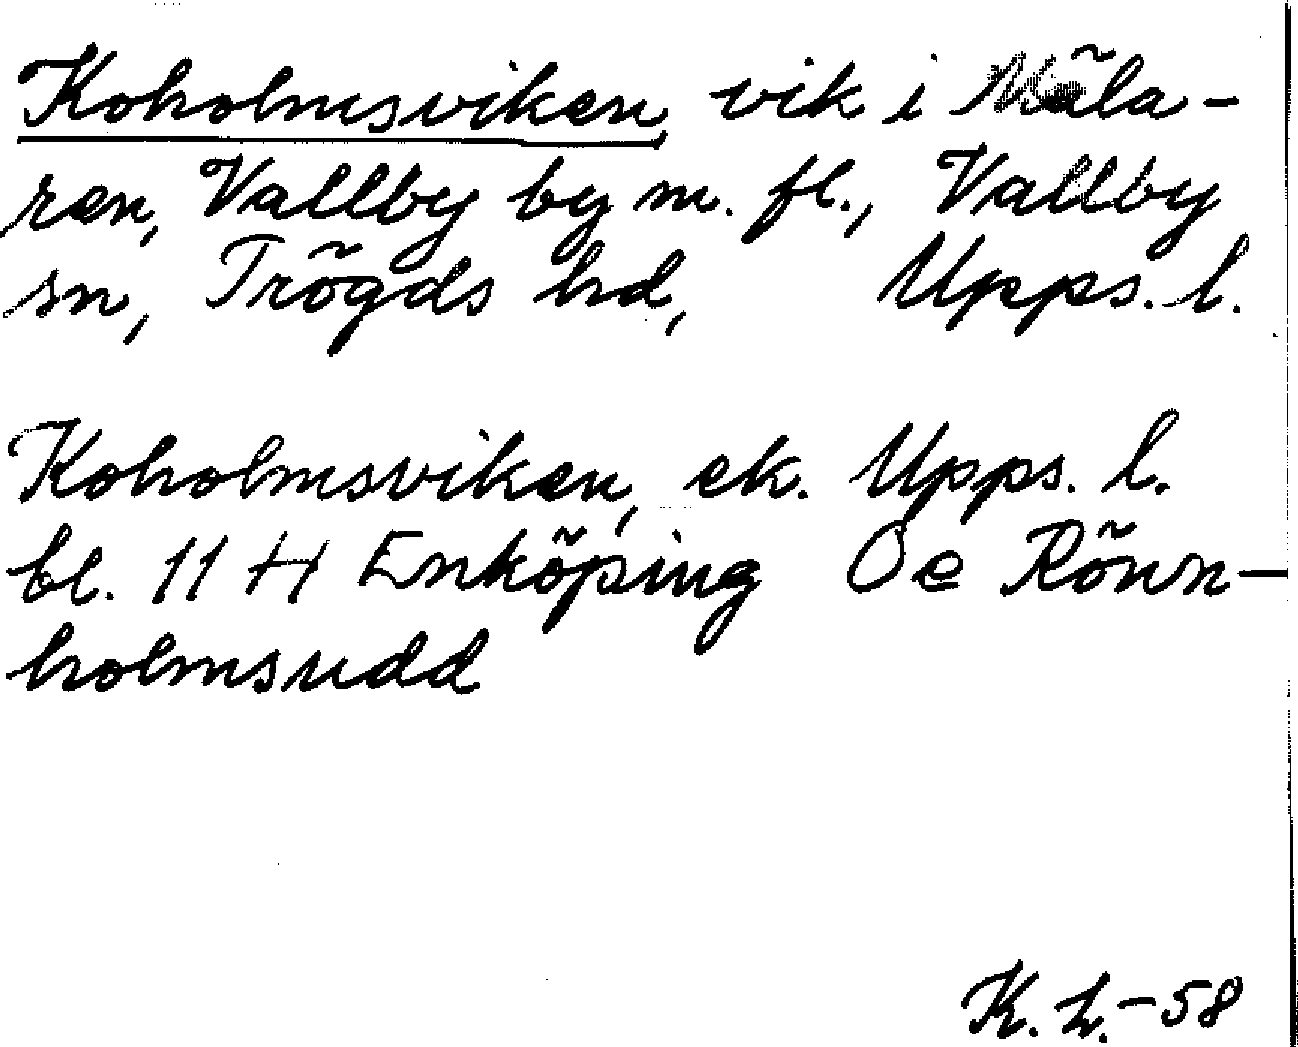 Koholmsviken, vik i Mäla-
ren, Vallby by m. fl., Vallby
sn, Trögds hd, Upps. l.
Koholmsviken, ek. Upps. l.
bl. 11 H Enköping Öe Rönn-
holmsudd
K. L. -58